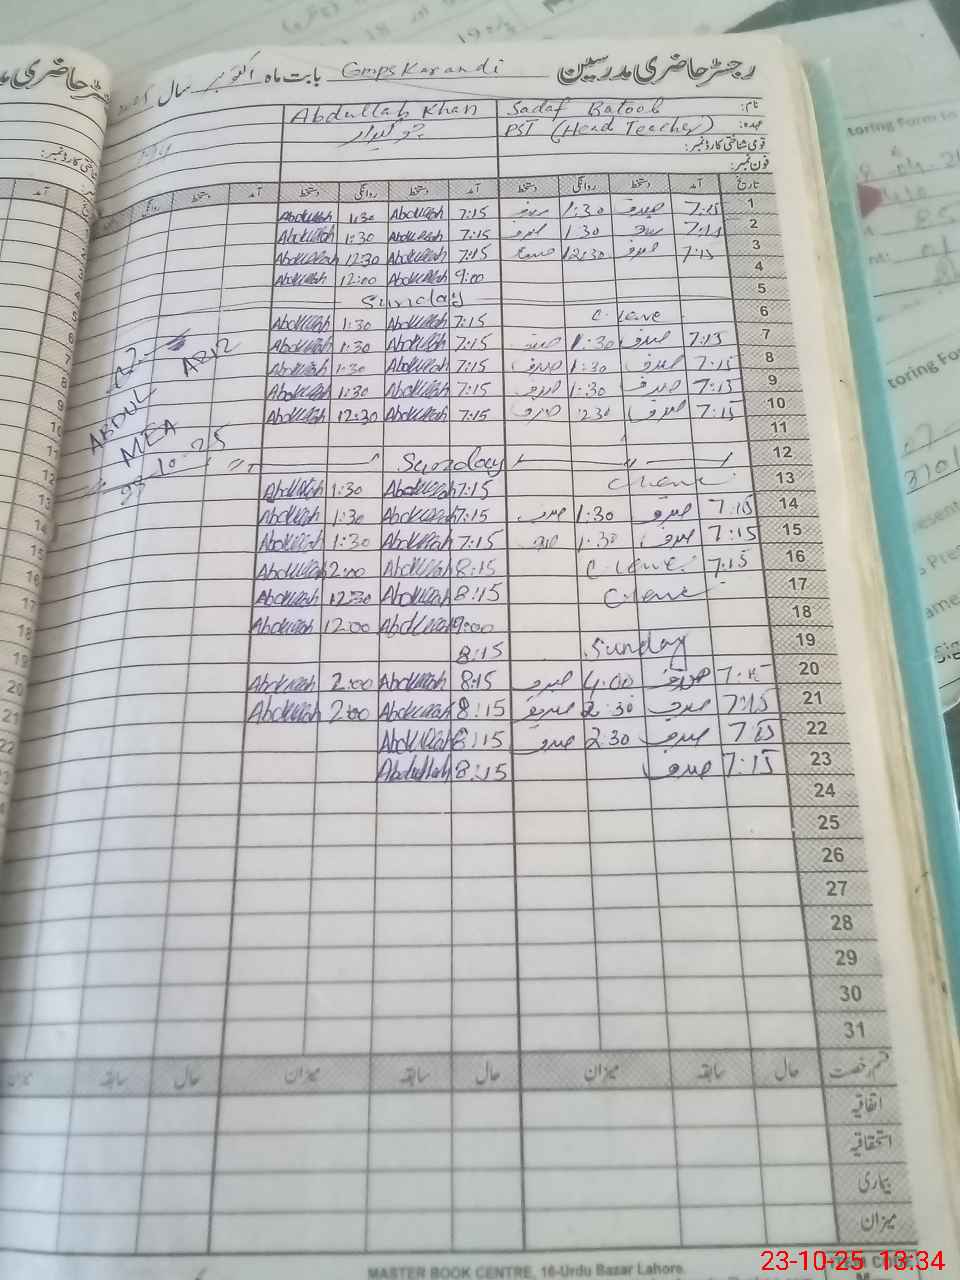 رجسٹر حاضری مدرسین Gmps Karandi بابت ماہ اکتوبر سال
نام: Sadaf Batool Abdullah Khan
عہدہ: PST (Head Teacher) چوکیدار
قومی شناختی کارڈ نمبر:
فون نمبر:
تاریخ آمد دستخط روانگی دستخط آمد دستخط روانگی دستخط آمد دستخط روانگی
1 7:15 صدف 1:30 صدف 7:15 Abdullah 1:30 Abdullah
2 7:15 صدف 1:30 صدف 7:15 Abdullah 1:30 Abdullah
3 7:15 صدف 12:30 صدف 7:15 Abdullah 12:30 Abdullah
4 9:00 Abdullah 12:00 Abdullah
5 Sunday
6 C leave 7:15 Abdullah 1:30 Abdullah
7 7:15 صدف 1:30 صدف 7:15 Abdullah 1:30 Abdullah
8 7:15 صدف 1:30 صدف 7:15 Abdullah 1:30 Abdullah
9 7:15 صدف 1:30 صدف 7:15 Abdullah 1:30 Abdullah
10 7:15 صدف 12:30 صدف 7:15 Abdullah 12:30 Abdullah
11
12 Sunday
13 7:15 Abdullah 1:30 Abdullah
14 7:15 صدف 1:30 صدف 7:15 Abdullah 1:30 Abdullah
15 7:15 صدف 1:30 صدف 7:15 Abdullah 1:30 Abdullah
16 7:15 C leave 8:15 Abdullah 2:00 Abdullah
17 C leave 8:15 Abdullah 12:30 Abdullah
18 9:00 Abdullah 12:00 Abdullah
19 Sunday 8:15
20 7:15 صدف 4:00 صدف 8:15 Abdullah 2:00 Abdullah
21 7:15 صدف 2:30 صدف 8:15 Abdullah 2:00 Abdullah
22 7:15 صدف 2:30 صدف 8:15 Abdullah
23 7:15 صدف 8:15 Abdullah
24
25
26
27
28
29
30
31
ABDUL AZIZ
MEA
23-10-25
قسم رخصت حال سابقہ میزان حال سابقہ میزان حال سابقہ میزان
اتفاقیہ
استحقاقیہ
بیماری
میزان
MASTER BOOK CENTRE, 16-Urdu Bazar Lahore.
23-10-25 13:34